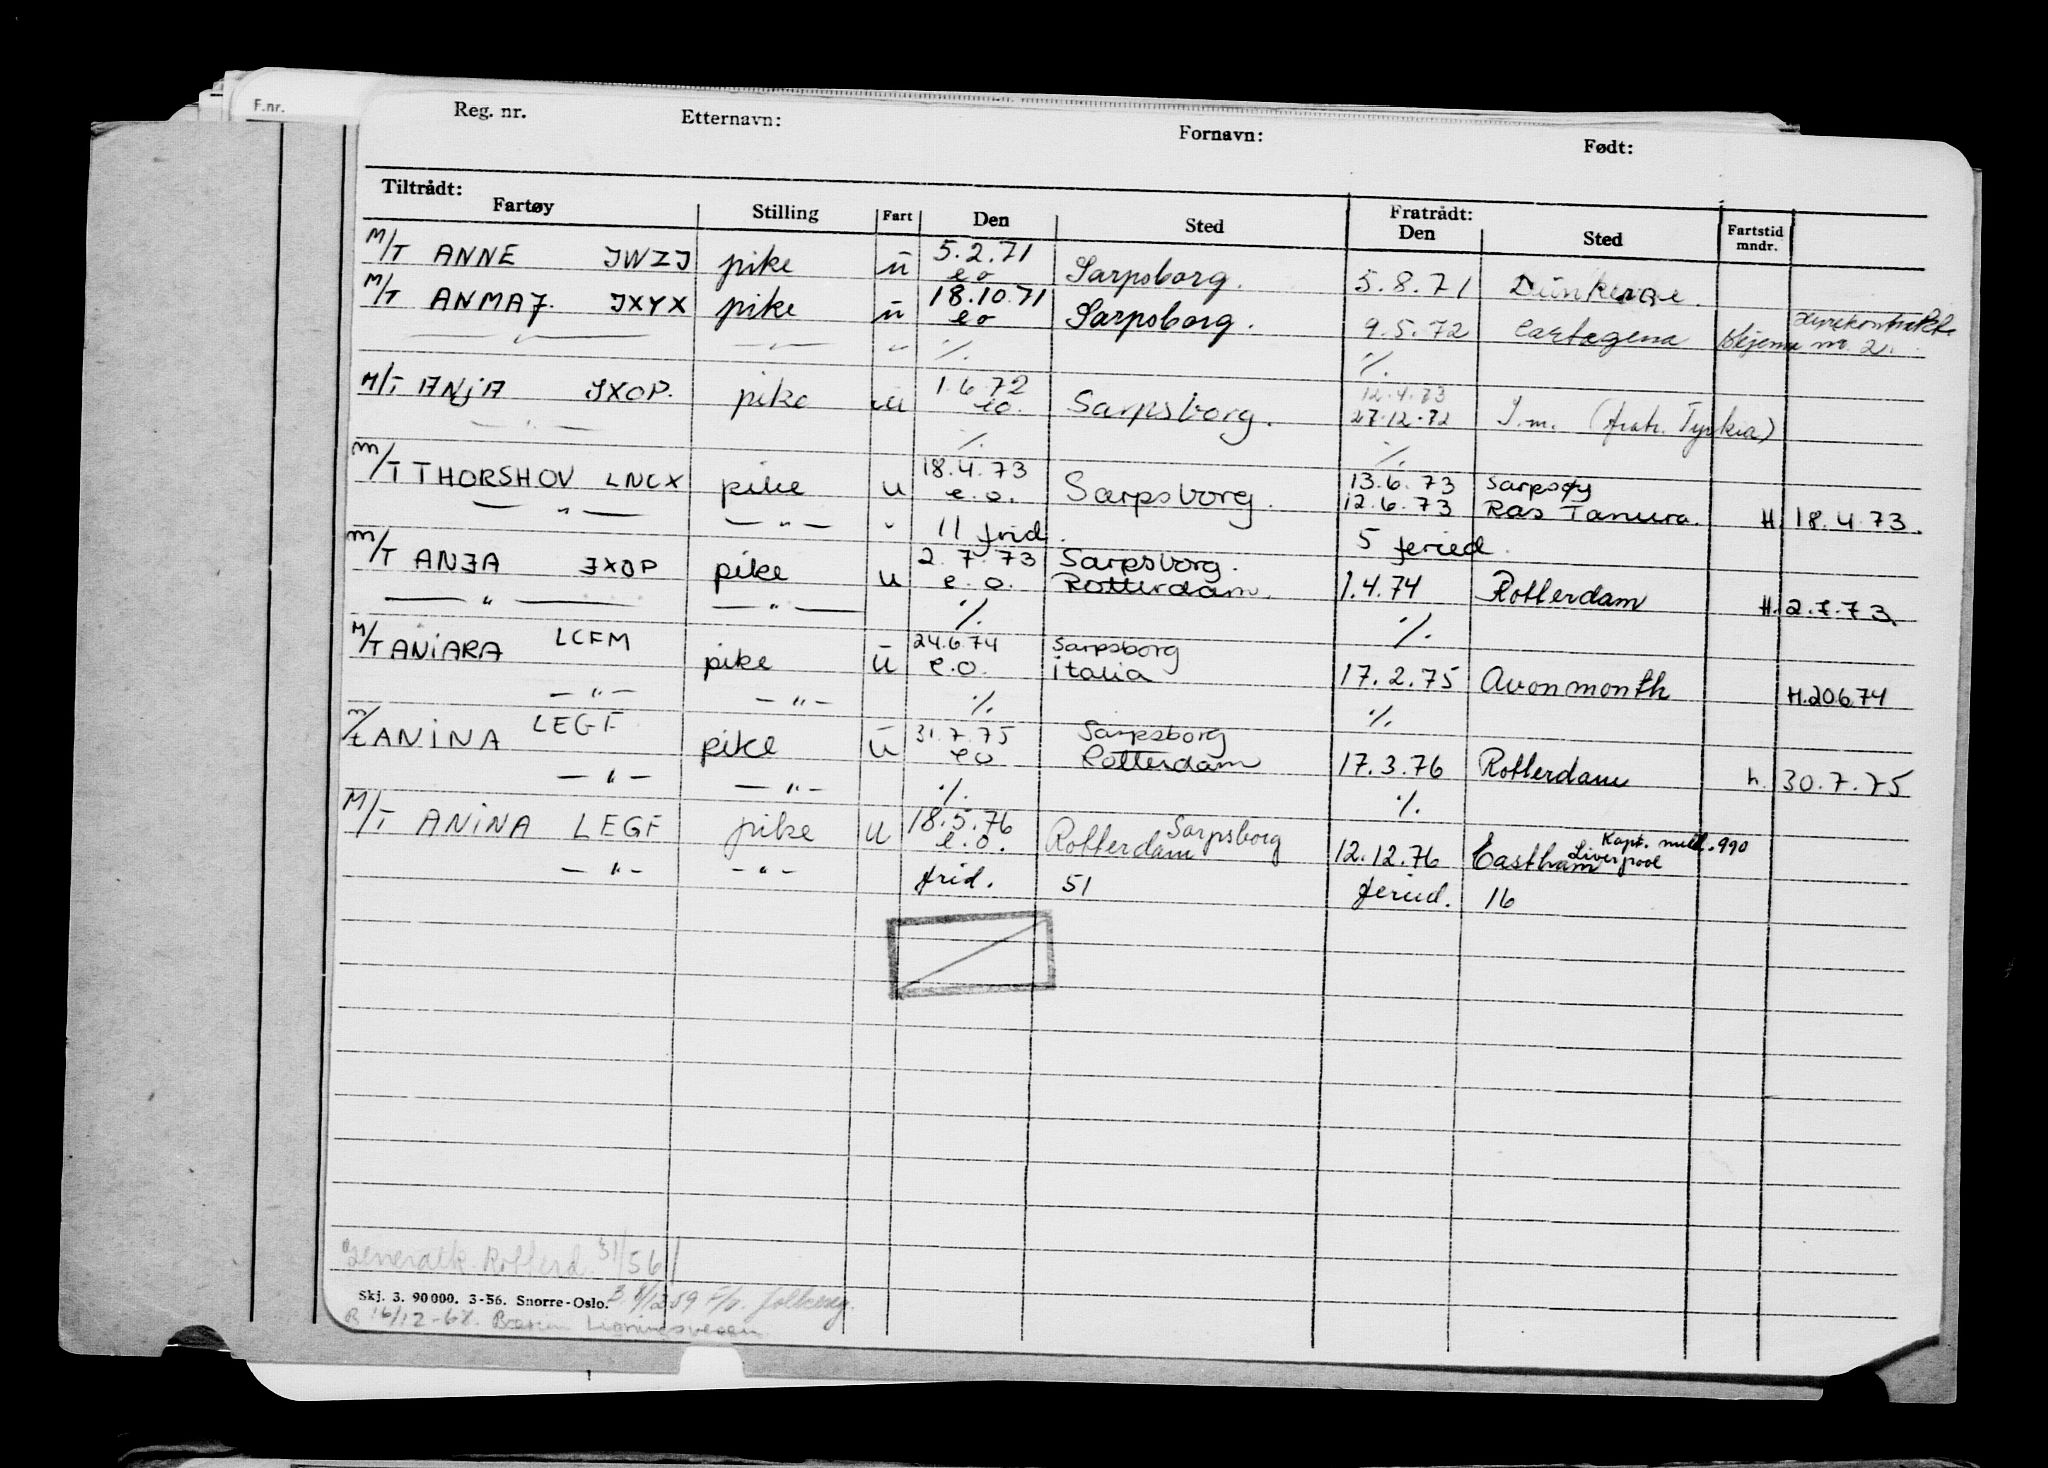 F.nr.
Reg. nr. Etternavn: Fornavn: Født:
Tiltrådt: Fratrådt:
Fartøy Stilling Fart Den Sted Den Sted Fartstid mndr.
M/T ANNE JWZJ pike ū 5.2.71 eo Sarpsborg. 5.8.71 Dünkerque.
M/T ANMAJ. JXYX pike ū 18.10.71 eo Sarpsborg. 9.5.72 Cartagena Skjema nr. 2.
— " — — " — " ./. ./.
M/T ANJA JXOP. pike ū 1.6.72 eo. Sarpsborg. 12.4.73 27.12.72 I.m. (fratr. Tyrkia)
— " — ./. ./.
M/T THORSHOV LNCX pike u 18.4.73 e.o. Sarpsborg. 13.6.73 12.6.73 Ras Tanura. H. 18.4.73.
— " — — " — " 11 frid. 5 feried.
M/T ANJA JXOP pike u 2.7.73 e.o. Sarpsborg. Rotterdam. 1.4.74 Rotterdam H. 2.7.73
— " — — " — ./. ./.
M/T ANIARA LCFM pike ū 24.6.74 e.o. Sarpsborg italia 17.2.75 Avonmonth H. 20674
— " — — " — ./. ./.
m/t ANINA LEGF pike ū 31.7.75 eo Sarpsborg Rotterdam 17.3.76 Rotterdam h. 30.7.75
— " — — " — ./. ./.
M/T ANINA LEGF pike u 18.5.76 e.o. Rotterdam Sarpsborg 12.12.76 Eastham Liverpool Kapt. meld. 990
— " — — " — frid. 51 feried. 16
Generalk. Rotterd. 31/56
Skj. 3. 90 000. 3-56. Snorre-Oslo.
B 16/12-68.